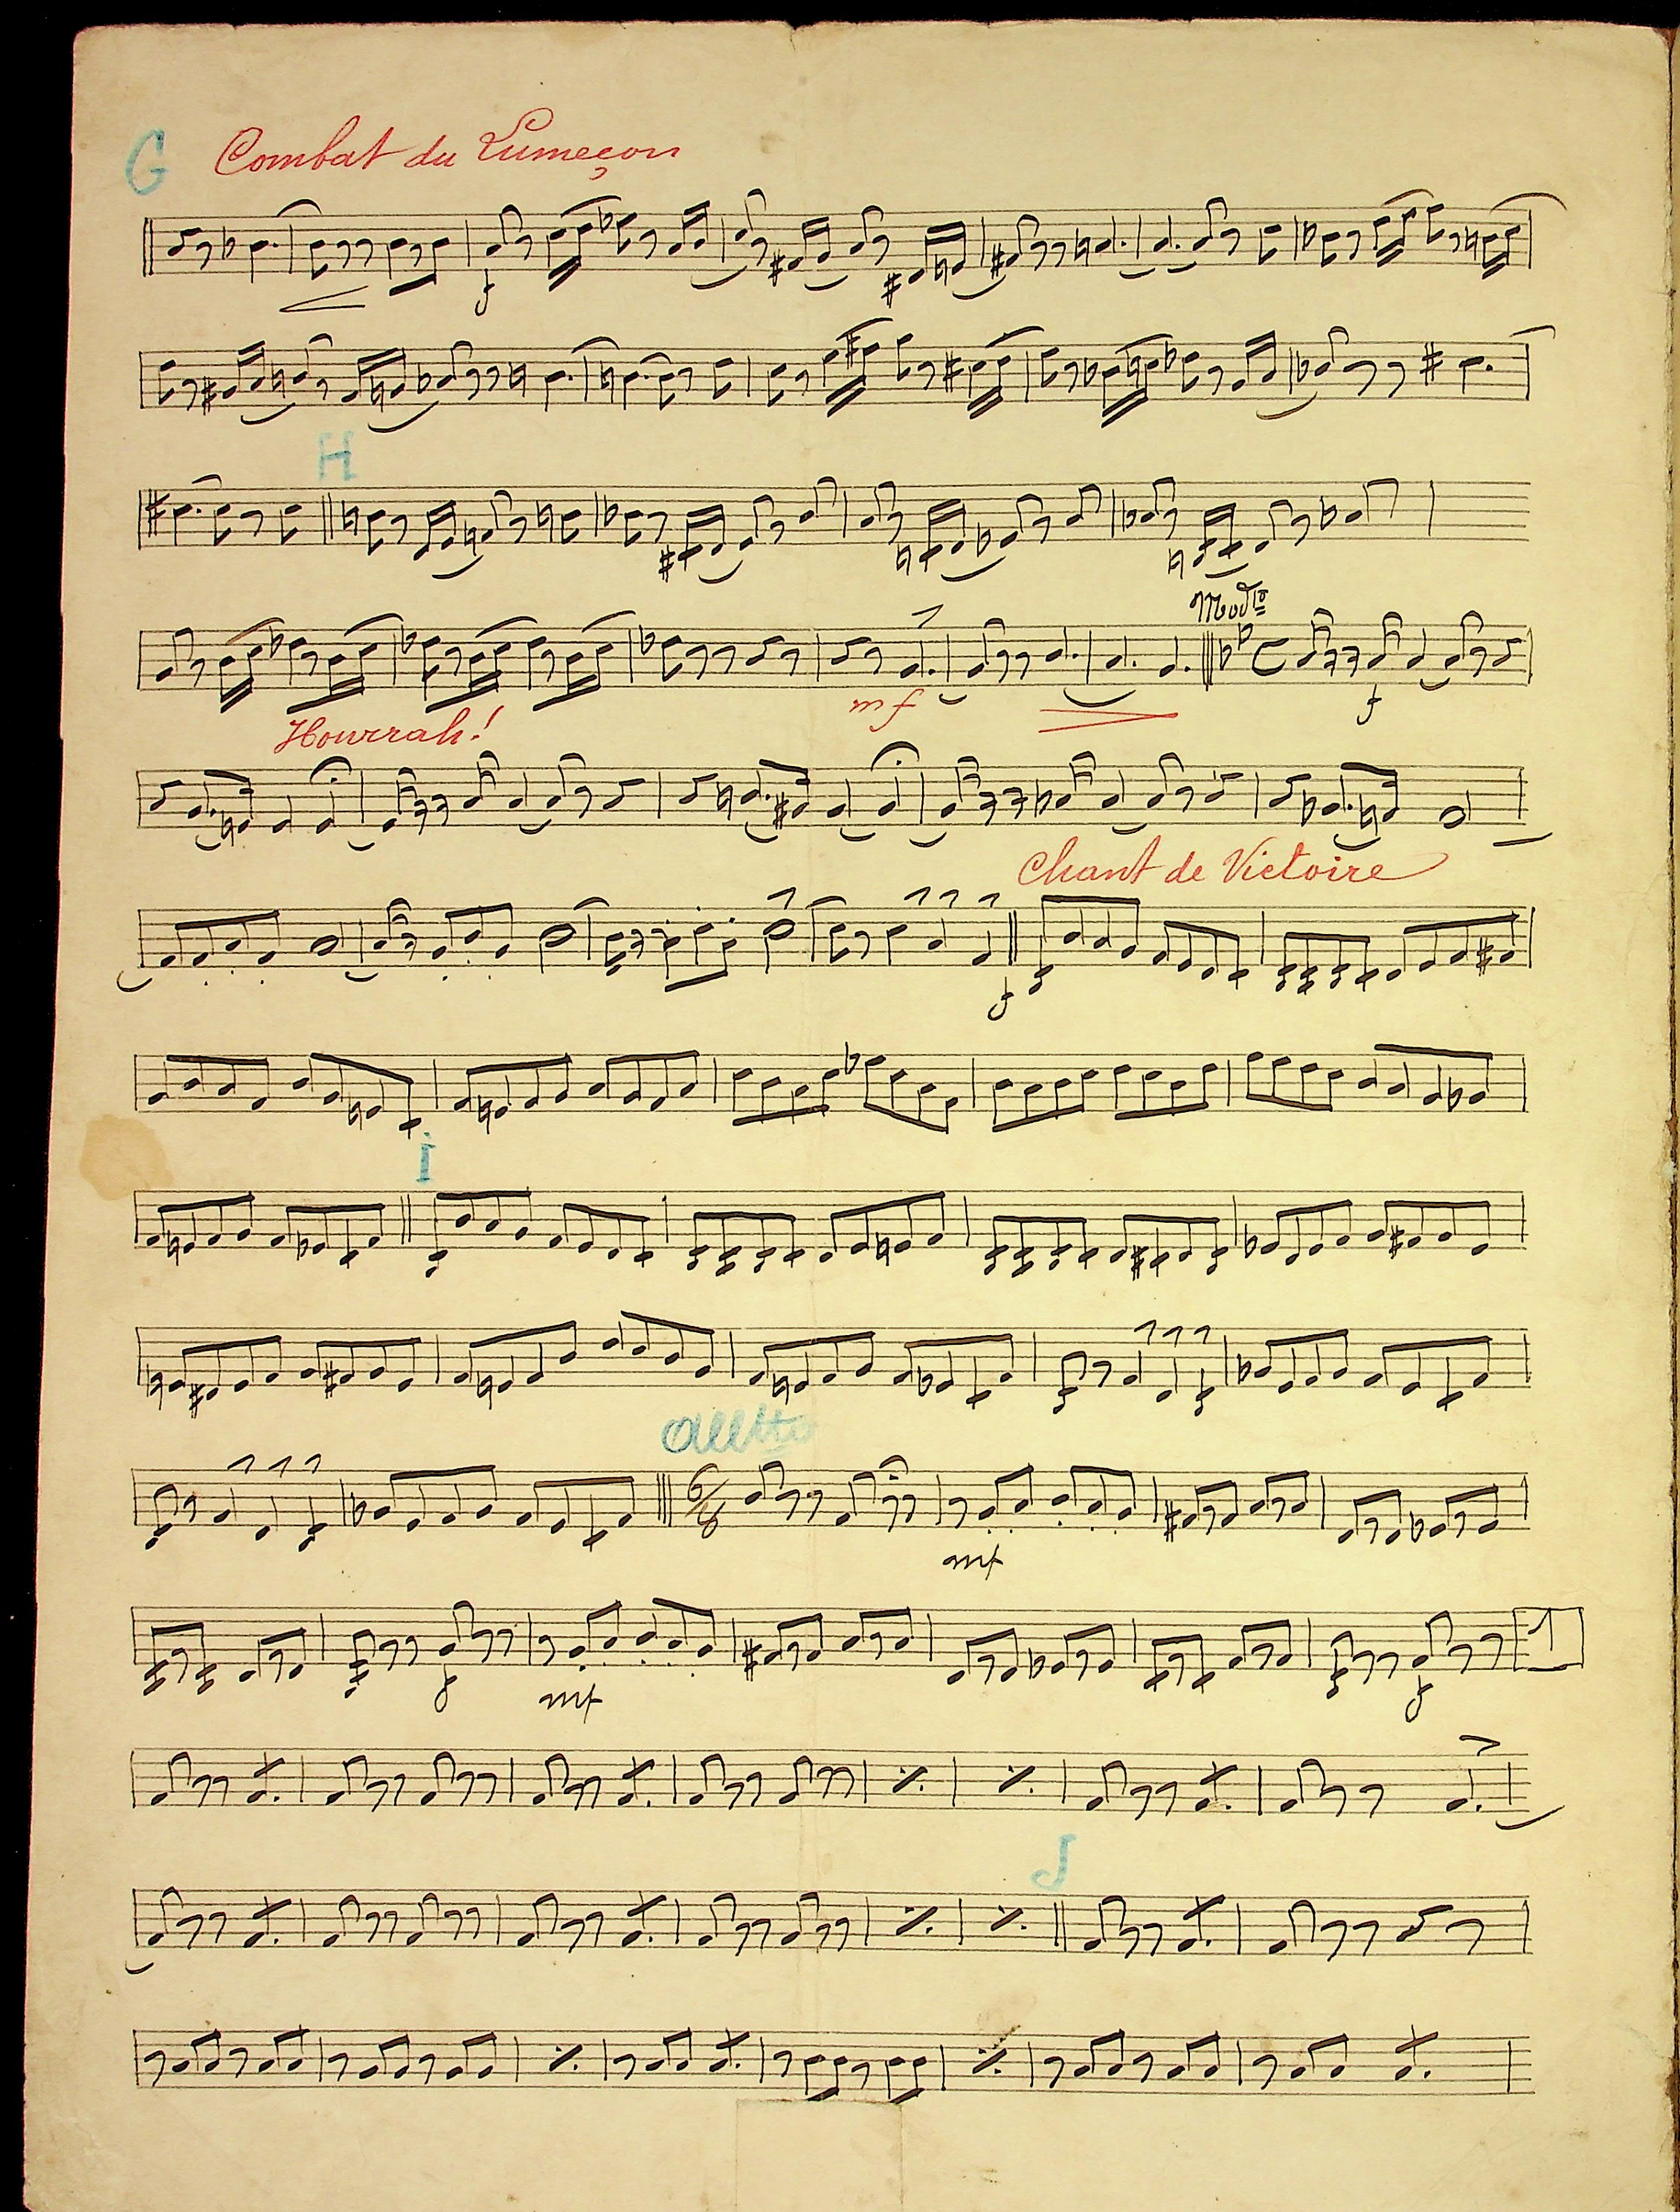 G Combat du Lumeçon
f
H
Modto
mf f
Hourrah!
Chant de Victoire
f
I
Alltto
6/8
mf
f mf f
J